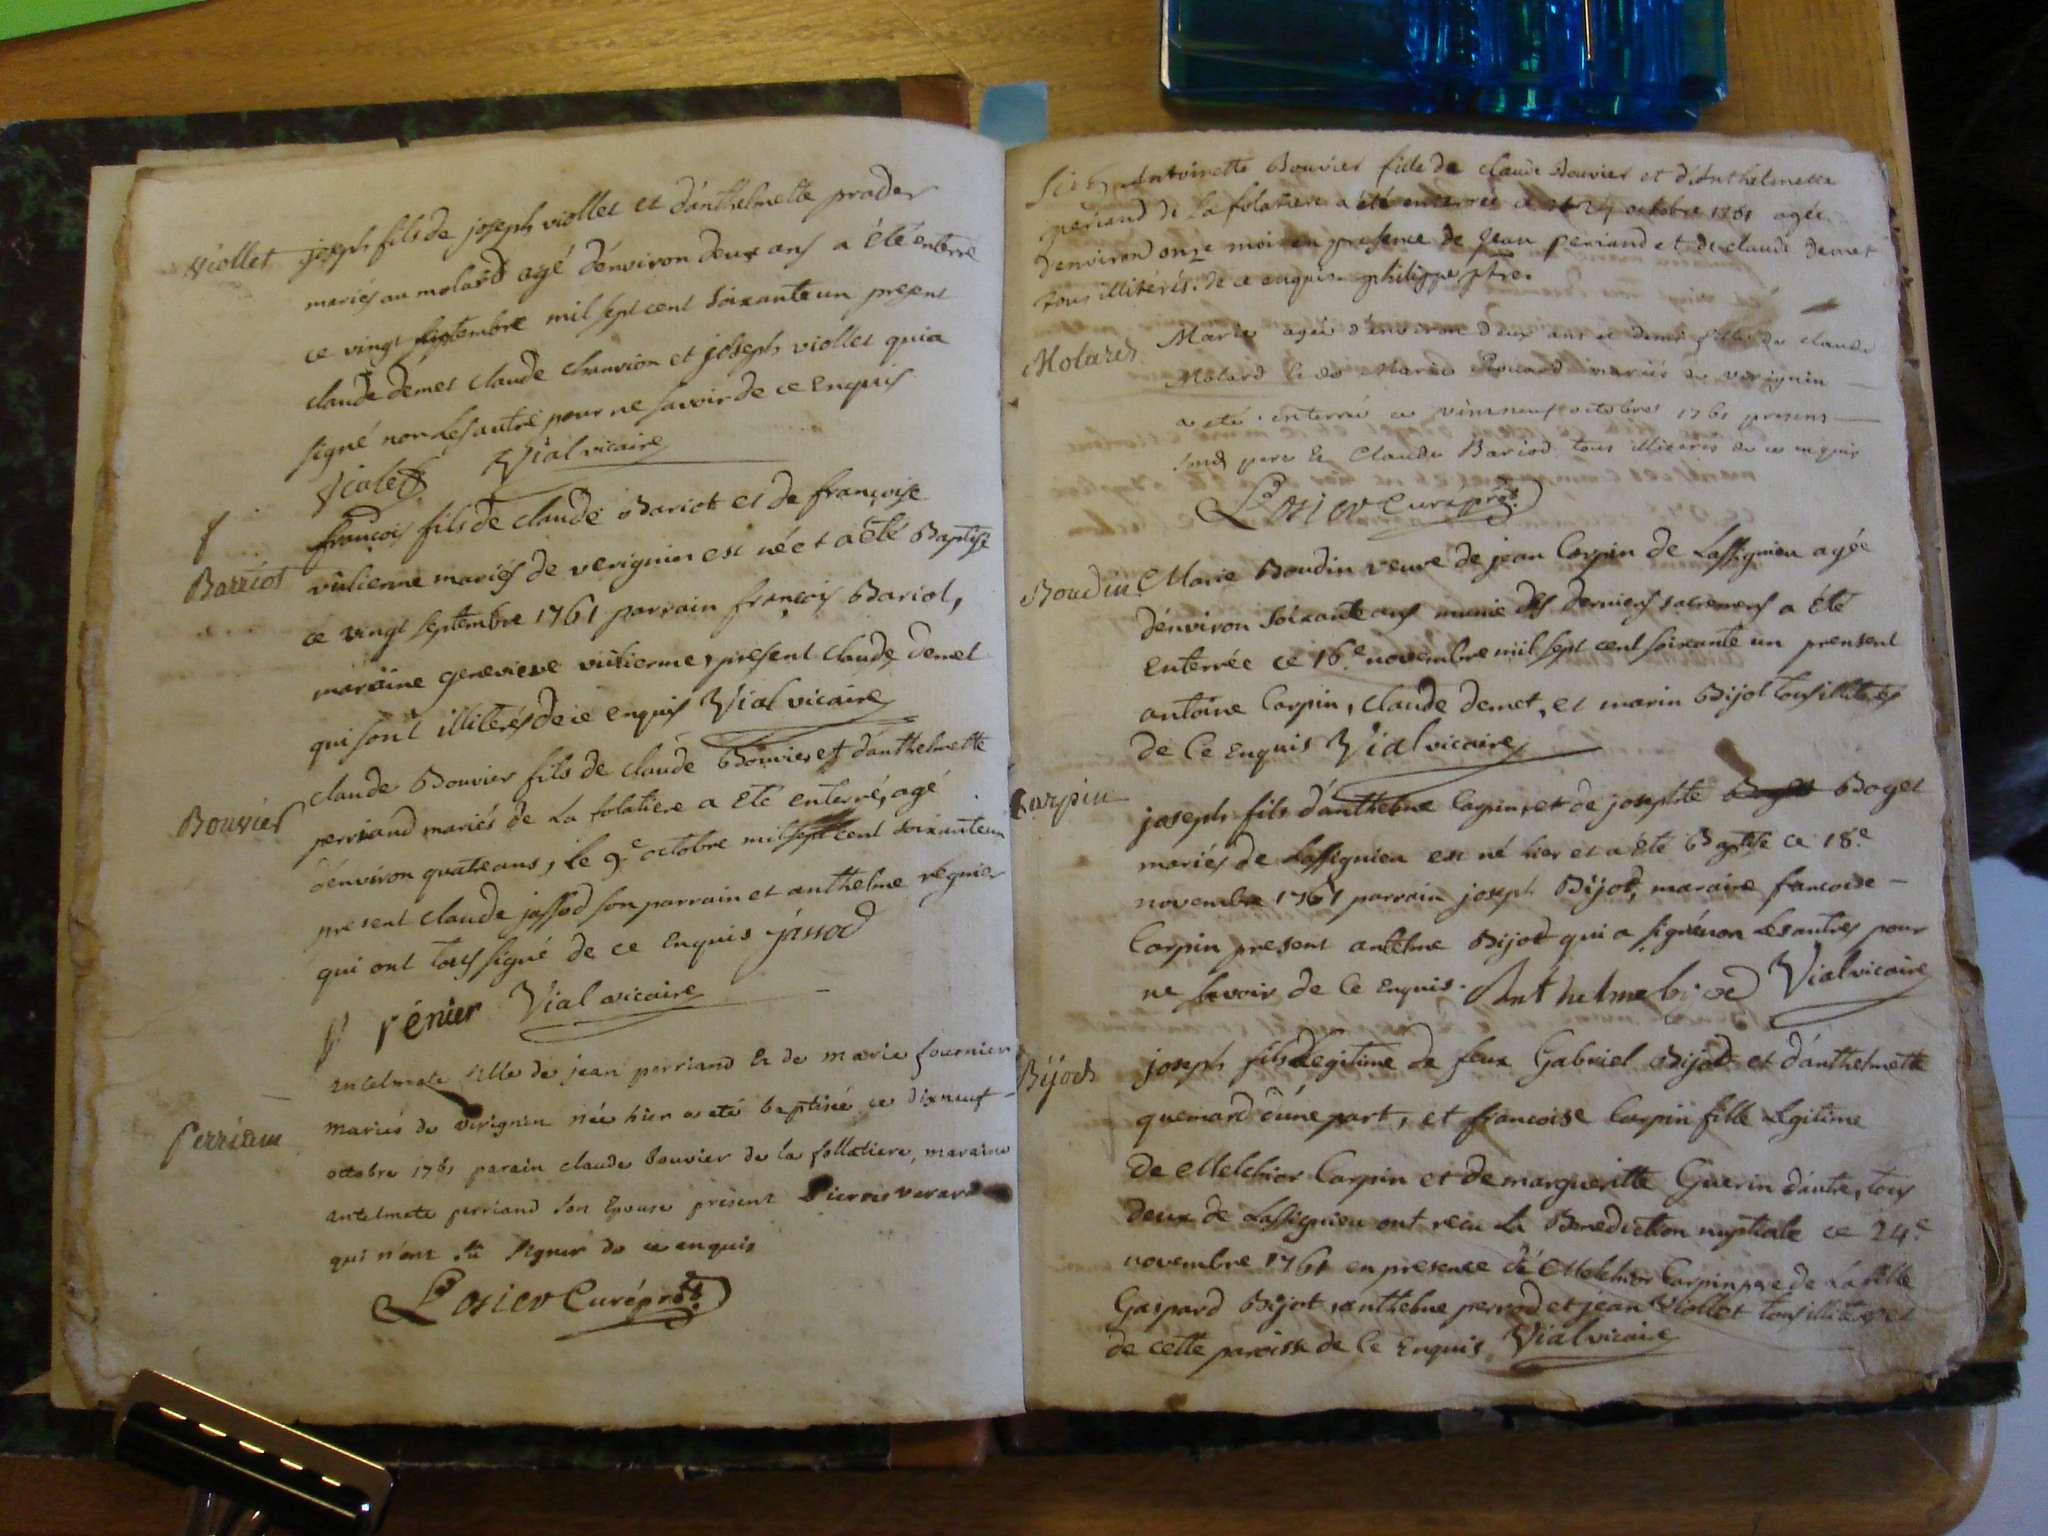 Viollet
joseph fils de joseph viollet et d'anthelmette prader
mariés au molard agé d'environ deux ans a été enterré
ce vingt septembre mil sept cent soixante un present
claude demet claude chanvion et joseph viollet qui a
signé non les autre pour ne savoir de ce enquis
Violet Vial vicaire
Barriot
françois fils de claude Bariot et de françoise
vulierme mariés de verignin est né et a été Baptisé
ce vingt septembre 1761 parrain françois Bariot,
maraine genevieve vulierme, present claude demet
qui sont illiterés de ce enquis Vial vicaire
Bouvier
claude Bouvier fils de claude Bouvier et d'anthelmette
perriand mariés de la folatiere a été enterré, agé
d'environ quatre ans, le 9e octobre mil sept cent soixante un
present claude jassod son parrain et anthelme régnier
qui ont tous signé de ce enquis jassod
rénier Vial vicaire
Perrian
antelmete fille de jean perriand et de marie fournier
mariés de virignin née hier a eté baptisée ce dixneuf
octobre 1761 parain claude bouvier de la follatiere, maraine
antelmete perriand son epouse present pierre verard
qui n'ont sû signer de ce enquis
Losier Curé
Antoinette Bouvier fille de claude Bouvier et d'Anthelmette
periand de La folatiere a été enterrée ce 24 octobre 1761 agée
d'environ onze mois en presence de Jean periand et de claude demet
tous illitérés. de ce enquis philippe ptre.
Molard
Marie agée d'environ deux ans et demi fille de claude
Molard et de Marie mariés de virignin
a eté enterrée ce vintneuf octobre 1761 presens
son pere et Claude Bariod tous illiterés de ce enquis
Losier Curé
Boudin
Marie Boudin veuve de jean Carpin de Lassignieu agée
d'environ soixante ans munie des derniers sacremens a été
Enterrée ce 16e novembre mil sept cent soixante un prensent
antoine Carpin, claude demet, et marin Bijot tous illiterés
de Ce Enquis Vial vicaire
Carpin
joseph fils d'anthelme Carpin, et de josephte Boget
mariés de Lassignieu est né hier et a été Baptisé ce 18e
novembre 1761 parrain joseph Bijot, maraine francoise
Carpin present antelme Bijot qui a signé non Les autres pour
ne savoir de Ce Enquis. Vial vicaire
Bijod
joseph fils Legitime de feux Gabriel Bijot et d'anthelmette
quemard d'une part, et francoise Carpin fille Legitime
de Melchior Carpin et de margueritte Guerin d'autre, tous
deux de Lassignieu ont recu La Benediction nuptiale ce 24e
novembre 1761 en presence de Melchior Carpin pere de La fille
Gaspard Bijot, anthelme perrod et jean Viollet tous illiteres
de cette paroisse de Ce Enquis Vial vicaire